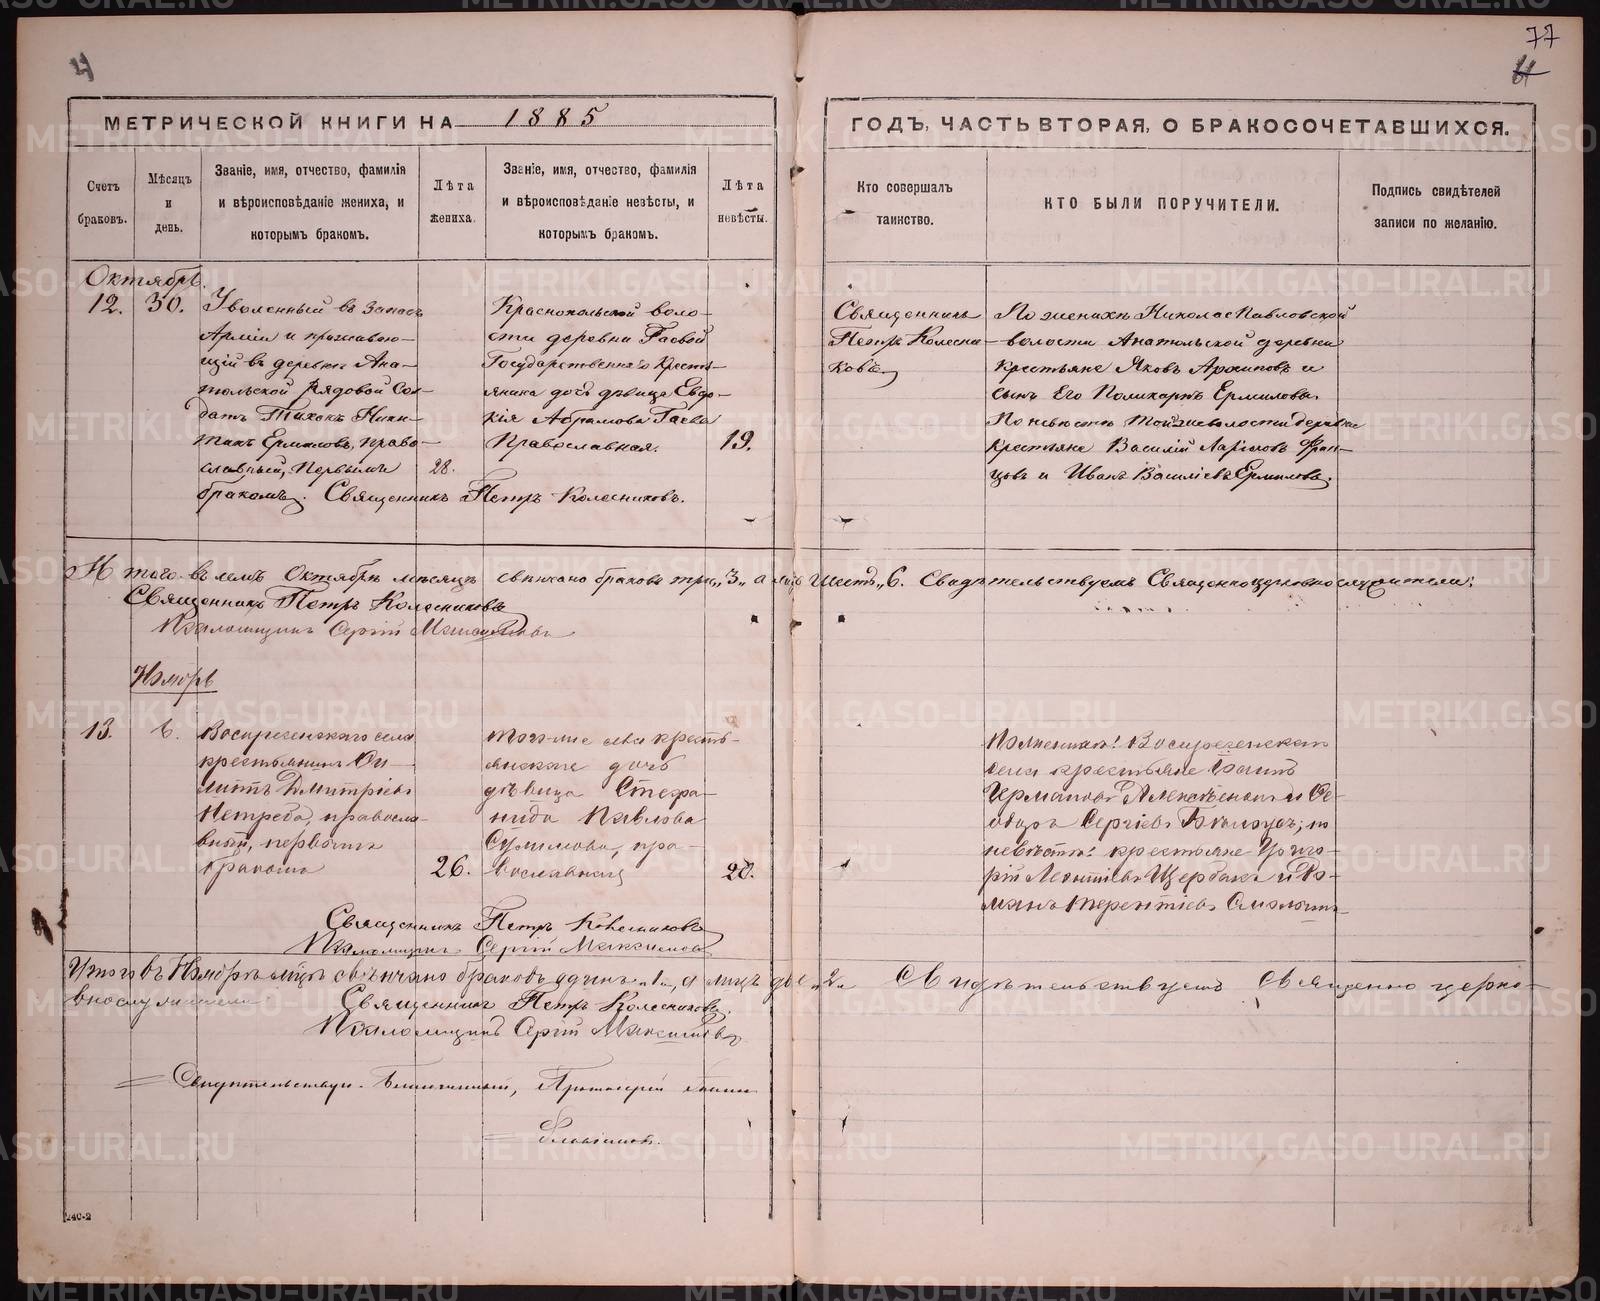 4
77
МЕТРИЧЕСКОЙ КНИГИ НА 1885
ГОДЪ, ЧАСТЬ ВТОРАЯ, О БРАКОСОЧЕТАВШИХСЯ.
Счетъ
браковъ.
Мѣсяцъ
и
день.
Званіе, имя, отчество, фамилія
и вѣроисповѣданіе жениха, и
которымъ бракомъ.
Лѣта
жениха.
Званіе, имя, отчество, фамилія
и вѣроисповѣданіе невѣсты, и
которымъ бракомъ.
Лѣта
невѣсты.
Кто совершалъ
таинство.
КТО БЫЛИ ПОРУЧИТЕЛИ.
Подпись свидѣтелей
записи по желанію.
Октябрь.
12.
30.
Уволенный въ запасъ
Арміи и проживаю-
щій въ деревнѣ Ана-
тольской Рядовой Сол-
датъ Тихонъ Ники-
тинъ Ермиловъ, право-
славный, первымъ
бракомъ.
28.
Краснопольской воло-
сти деревни Гаевой
Государственнаго Кресть-
янина дочь дѣвица Евдо-
кія Абрамова Гаева
Православная.
19.
Священникъ Петръ Колесниковъ.
Священникъ
Петръ Колесни-
ковъ
По женихѣ Николае Павловской
волости Анатольской деревни
крестьяне Яковъ Архиповъ и
сынъ Его Поликарпъ Ермиловы.
По невѣстѣ той же волости деревни
крестьяне Василій
и Иванъ Василіевъ Ермиловъ.
Итого въ Октябрѣ мѣсяцѣ свѣнчано браковъ три „3„ а лицъ шесть „6. Свидѣтельствуемъ Священноцерковнослужители:
Священникъ Петръ Колесниковъ
Псаломщикъ Сергій Максимовъ
Ноябрь
13.
6.
Воскресенскаго села
крестьянинъ
Димитріевъ
Петреба, правосла-
вный, первымъ
бракомъ
26.
того-же села кресть-
янская дочь
дѣвица Стефа-
нида Павлова
Сулимова, пра-
вославная
20.
По женихѣ: Воскресенскаго
села крестьяне
и Ѳе-
доръ Сергіевъ
невѣстѣ: крестьяне Григо-
рій Леонтіевъ Щербакъ и Ро-
манъ Терентіевъ
Священникъ Петръ Колесниковъ
Псаломщикъ Сергій Максимовъ
Итого въ Ноябрѣ м҃цѣ свѣнчано браковъ одинъ „1„, а лицъ двѣ „2„ Свидѣтельствуемъ Священно церко-
внослужители
Священникъ Петръ Колесниковъ.
Псаломщикъ Сергій Максимовъ
Свидѣтельствовалъ Благочинный, Протоіерей
240-2
METRIKI.GASO-URAL.RU